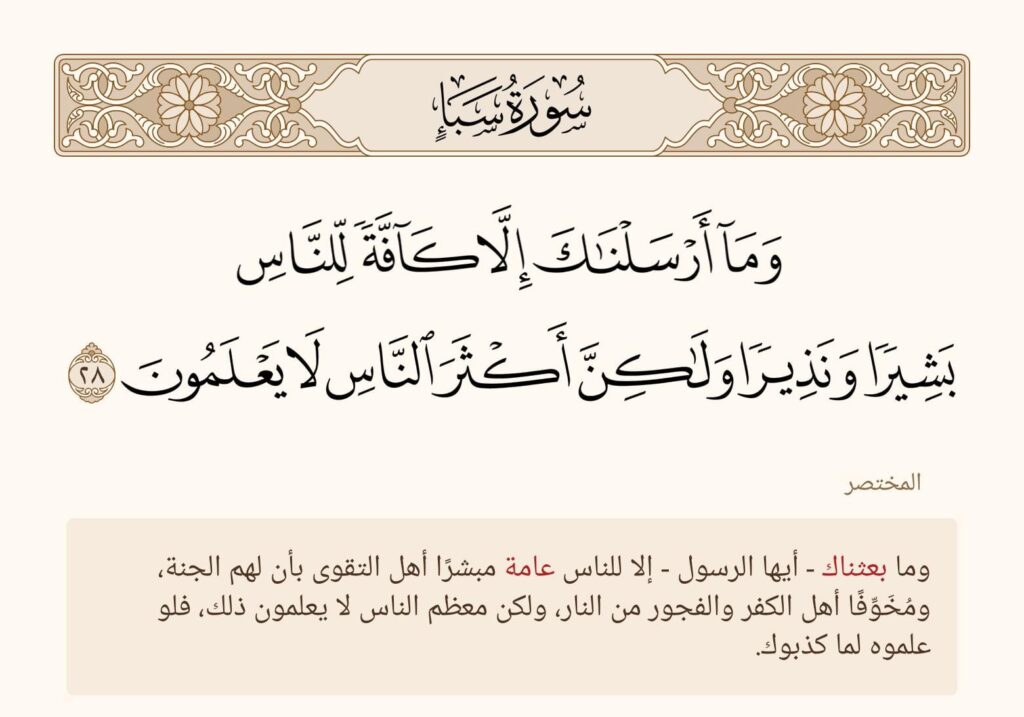 سُورَةُ سَبَإٍ
وَمَآ أَرۡسَلۡنَٰكَ إِلَّا كَآفَّةٗ لِّلنَّاسِ
بَشِيرٗا وَنَذِيرٗا وَلَٰكِنَّ أَكۡثَرَ ٱلنَّاسِ لَا يَعۡلَمُونَ ٢٨
المختصر
وما بعثناك - أيها الرسول - إلا للناس عامة مبشرًا أهل التقوى بأن لهم الجنة،
ومُخَوِّفًا أهل الكفر والفجور من النار، ولكن معظم الناس لا يعلمون ذلك، فلو
علموه لما كذبوك.